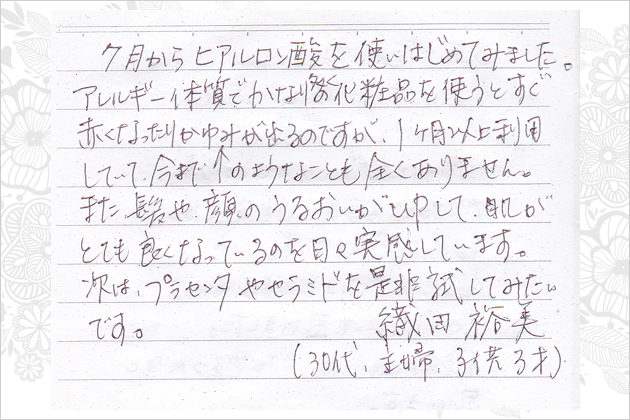 7月からヒアルロン酸を使いはじめてみました。
アレルギー体質でかなり 化粧品を使うとすぐ
赤くなったりかゆみが出るのですが、1ヶ月以上利用
していて、今まで↑のようなことも全くありません。
また、髪や顔のうるおいが 肌が
とても良くなっているのを日々実感しています。
次は、プラセンタやセラミドを是非試してみたい
です。
織田 裕美
(30代、主婦、子供3才)